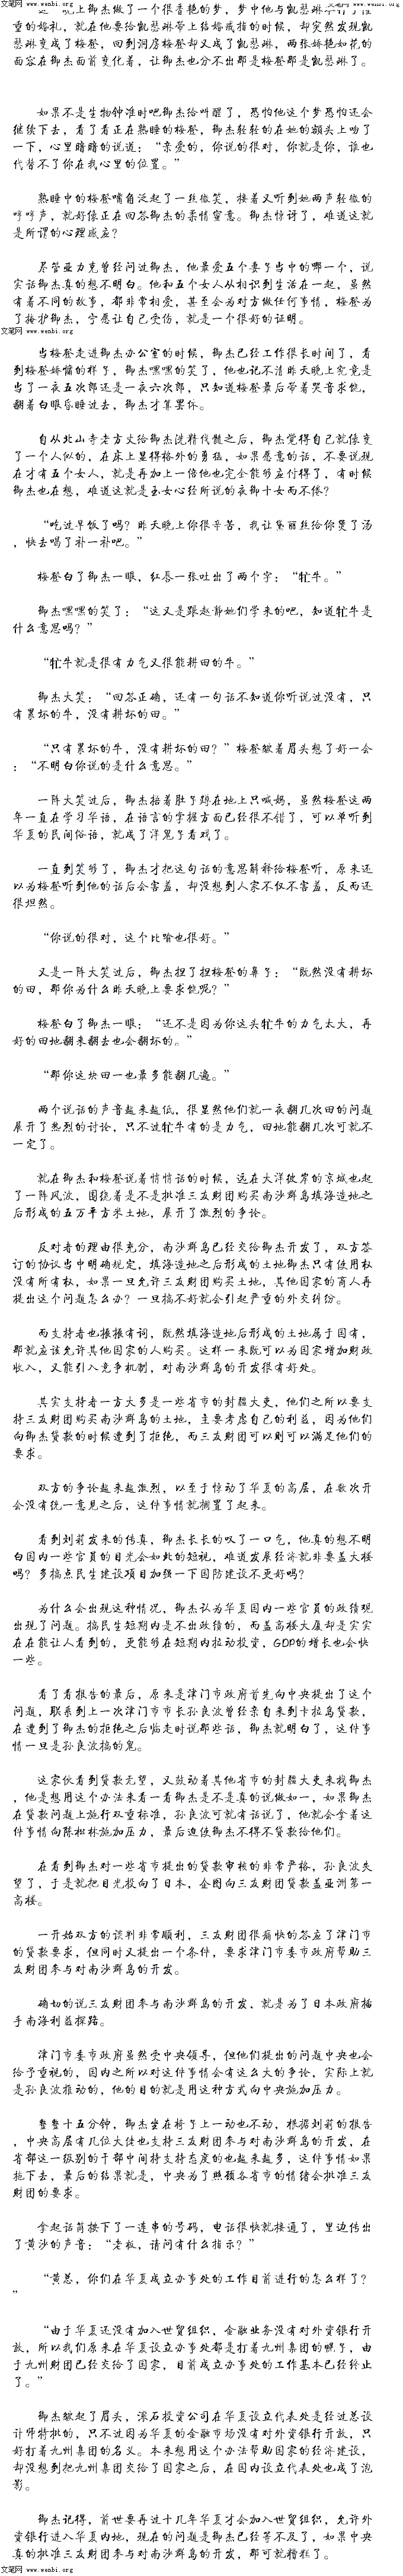 文笔网 www.wenbi.org 文笔网 www.wenbi.org
这一晚上御杰做了一个很香艳的梦，梦中他与凯瑟琳举行了隆
重的婚礼，就在他要给凯瑟琳带上结婚戒指的时候，却突然发现凯
瑟琳变成了梅登，回到洞房梅登却又成了凯瑟琳，两张娇艳如花的
面容在御杰面前变化着，让御杰也分不出那是梅登那是凯瑟琳了。
如果不是生物钟准时吧御杰给叫醒了，恐怕他这个梦恐怕还会
继续下去，看了看正在熟睡的梅登，御杰轻轻的在她的额头上吻了
一下，心里暗暗的说道：“亲爱的，你说的很对，你就是你，谁也
代替不了你在我心里的位置。”
熟睡中的梅登嘴角泛起了一丝微笑，接着又听到她两声轻微的
哼哼声，就好像正在回答御杰的柔情蜜意。御杰惊讶了，难道这就
是所谓的心理感应？
尽管亚力克曾经问过御杰，他最爱五个妻子当中的哪一个，说
实话御杰真的想不明白。他和五个女人从相识到生活在一起，虽然
有着不同的故事，都非常相爱，甚至会为对方做任何事情，梅登为
了掩护御杰，宁愿让自己受伤，就是一个很好的证明。
文笔网 www.wenbi.org
当梅登走进御杰办公室的时候，御杰已经工作很长时间了，看
到梅登娇慵的样子，御杰嘿嘿的笑了，他也记不清昨天晚上究竟是
当了一夜五次郎还是一夜六次郎，只知道梅登最后带着哭音求饶，
翻着白眼昏睡过去，御杰才算罢休。
自从北山寺老方丈给御杰洗精伐髓之后，御杰觉得自己就像变
了一个人似的，在床上显得格外的勇猛，如果愿意的话，不要说现
在才有五个女人，就是再加上一倍他也完全能够应付得了，有时候
御杰也在想，难道这就是玉女心经所说的夜御十女而不倦？
“吃过早饭了吗？昨天晚上你很辛苦，我让黛丽丝给你煲了汤
，快去喝了补一补吧。”
梅登白了御杰一眼，红唇一张吐出了两个字：“牤牛。”
御杰嘿嘿的笑了：“这又是跟赵静她们学来的吧，知道牤牛是
什么意思吗？”
“牤牛就是很有力气又很能耕田的牛。”
御杰大笑：“回答正确，还有一句话不知道你听说过没有，只
有累坏的牛，没有耕坏的田。”
“只有累坏的牛，没有耕坏的田？”梅登皱着眉头想了好一会
：“不明白你说的是什么意思。”
一阵大笑过后，御杰捂着肚子蹲在地上只喊妈，虽然梅登这两
年一直在学习华语，在语言的掌握方面已经很不错了，可以单听到
华夏的民间俗语，就成了洋鬼子看戏了。
一直到笑够了，御杰才把这句话的意思解释给梅登听，原来还
以为梅登听到他的话后会害羞，却没想到人家不仅不害羞，反而还
很坦然。
“你说的很对，这个比喻也很好。”
又是一阵大笑过后，御杰捏了捏梅登的鼻子：“既然没有耕坏
的田，那你为什么昨天晚上要求饶呢？”
梅登白了御杰一眼：“还不是因为你这头牤牛的力气太大，再
好的田地翻来翻去也会翻坏的。”
“那你这块田一也最多能翻几遍。”
两个说话的声音越来越低，很显然他们就一夜翻几次田的问题
展开了热烈的讨论，只不过牤牛有的是力气，田地能翻几次可就不
一定了。
就在御杰和梅登说着悄悄话的时候，远在大洋彼岸的京城也起
了一阵风波，围绕着是不是批准三友财团购买南沙群岛填海造地之
后形成的五万平方米土地，展开了激烈的争论。
反对者的理由很充分，南沙群岛已经交给御杰开发了，双方签
订的协议当中明确规定，填海造地之后形成的土地御杰只有使用权
没有所有权，如果一旦允许三友财团购买土地，其他国家的商人再
提出这个问题怎么办？一旦搞不好就会引起严重的外交纠纷。
而支持者也振振有词，既然填海造地后形成的土地属于国有，
那就应该允许其他国家的人购买。这样一来既可以为国家增加财政
收入，又能引入竞争机制，对南沙群岛的开发很有好处。
其实支持者一方大多是一些省市的封疆大吏，他们之所以要支
持三友财团购买南沙群岛的土地，主要考虑自己的利益，因为他们
向御杰贷款的时候遭到了拒绝，而三友财团可以则可以满足他们的
要求。
双方的争论越来越激烈，以至于惊动了华夏的高层，在数次开
会没有统一意见之后，这件事情就搁置了起来。
看到刘莉发来的传真，御杰长长的叹了一口气，他真的想不明
白国内一些官员的目光会如此的短视，难道发展经济就非要盖大楼
吗？多搞点民生建设项目加强一下国防建设不更好吗？
为什么会出现这种情况，御杰认为华夏国内一些官员的政绩观
出现了问题。搞民生短期内是不出政绩的，而盖高楼大厦却是实实
在在能让人看到的，更能够在短期内拉动投资，GDP的增长也会快
一些。
看了看报告的最后，原来是津门市政府首先向中央提出了这个
问题，联系到上一次津门市市长孙良波曾经亲自来到卡拉岛贷款，
在遭到了御杰的拒绝之后临走时说那些话，御杰就明白了，这件事
情一旦是孙良波搞的鬼。
这家伙看到贷款无望，又鼓动着其他省市的封疆大吏来找御杰
，他是想用这个办法来看一看御杰是不是真的说做如一，如果御杰
在贷款问题上施行双重标准，孙良波可就有话说了，他就会拿着这
件事情向陈松林施加压力，最后迫使御杰不得不贷款给他们。
在看到御杰对一些省市提出的贷款审核的非常严格，孙良波失
望了，于是就把目光投向了日本，企图向三友财团贷款盖亚洲第一
高楼。
一开始双方的谈判非常顺利，三友财团很痛快的答应了津门市
的贷款要求，但同时又提出一个条件，要求津门市委市政府帮助三
友财团参与对南沙群岛的开发。
确切的说三友财团参与南沙群岛的开发，就是为了日本政府插
手南海利益探路。
津门市委市政府虽然受中央领导，但他们提出的问题中央也会
给予重视的，国内之所以对这件事情会有这么大的争论，实际上就
是孙良波推动的，他的目的就是用这种方式向中央施加压力。
整整十五分钟，御杰坐在椅子上一动也不动，根据刘莉的报告
，中央高层有几位大佬也支持三友财团参与对南沙群岛的开发，在
省部这一级别的干部中间持支持态度的也越来越多，这件事情如果
拖下去，最后的结果就是，中央为了照顾各省市的情绪会批准三友
财团的要求。
拿起话筒按下了一连串的号码，电话很快就接通了，里边传出
了黄沙的声音：“老板，请问有什么指示？”
“黄总，你们在华夏成立办事处的工作目前进行的怎么样了？
”
“由于华夏还没有加入世贸组织，金融业务没有对外资银行开
放，所以我们原来在华夏设立办事处都是打着九州集团的幌子，由
于九州财团已经交给了国家，目前成立办事处的工作基本已经终止
了。”
御杰皱起了眉头，滚石投资公司在华夏设立代表处是经过总设
计师特批的，只不过因为华夏的金融市场没有对外资银行开放，只
好打着九州集团的名义。本来想用这个办法帮助国家的经济建设，
却没想到把九州集团交给了国家之后，在国内设立代表处也成了泡
影。
御杰记得，前世要再过十几年华夏才会加入世贸组织，允许外
资银行进入华夏内地，现在的问题是御杰已经等不及了，如果中央
真的批准三友财团参与对南沙群岛的开发，那可就糟糕了。
文笔网 www.wenbi.org